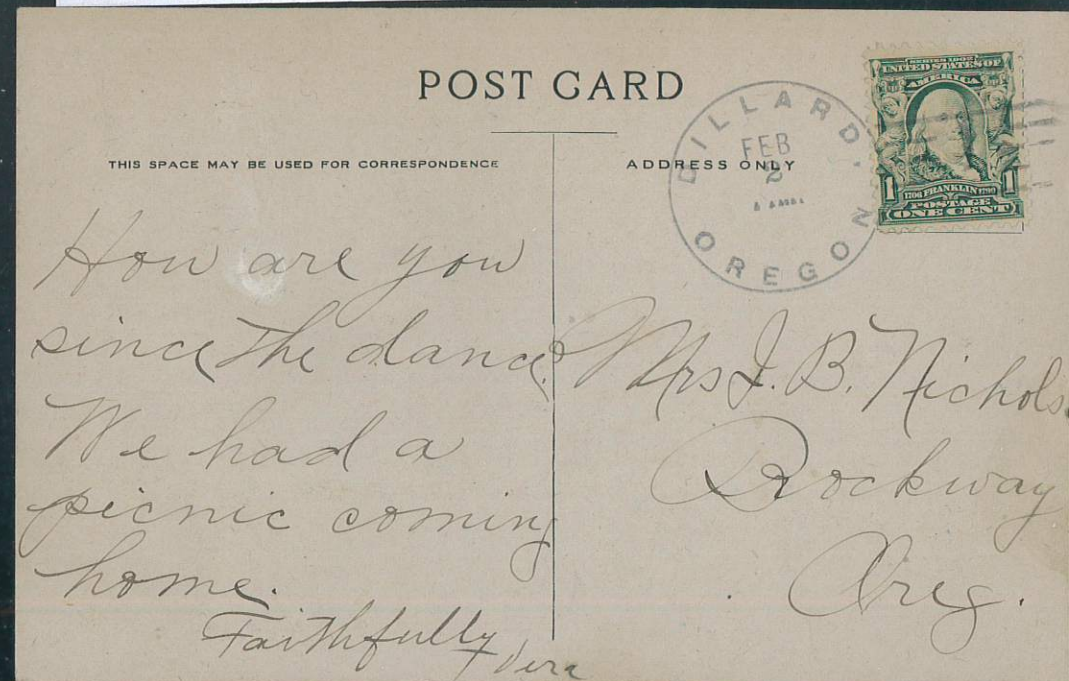 POST CARD
THIS SPACE MAY BE USED FOR CORRESPONDENCE
ADDRESS ONLY
DILLARD.
OREGON
FEB
2
SERIES 1902
UNITED STATES OF
AMERICA
1 1706 FRANKLIN 1790 1
POSTAGE
ONE CENT
How are you
since the dance?
We had a
picnic coming
home.
Faithfully
Vera
Mrs J. B. Nichols.
Rockway
Oreg.